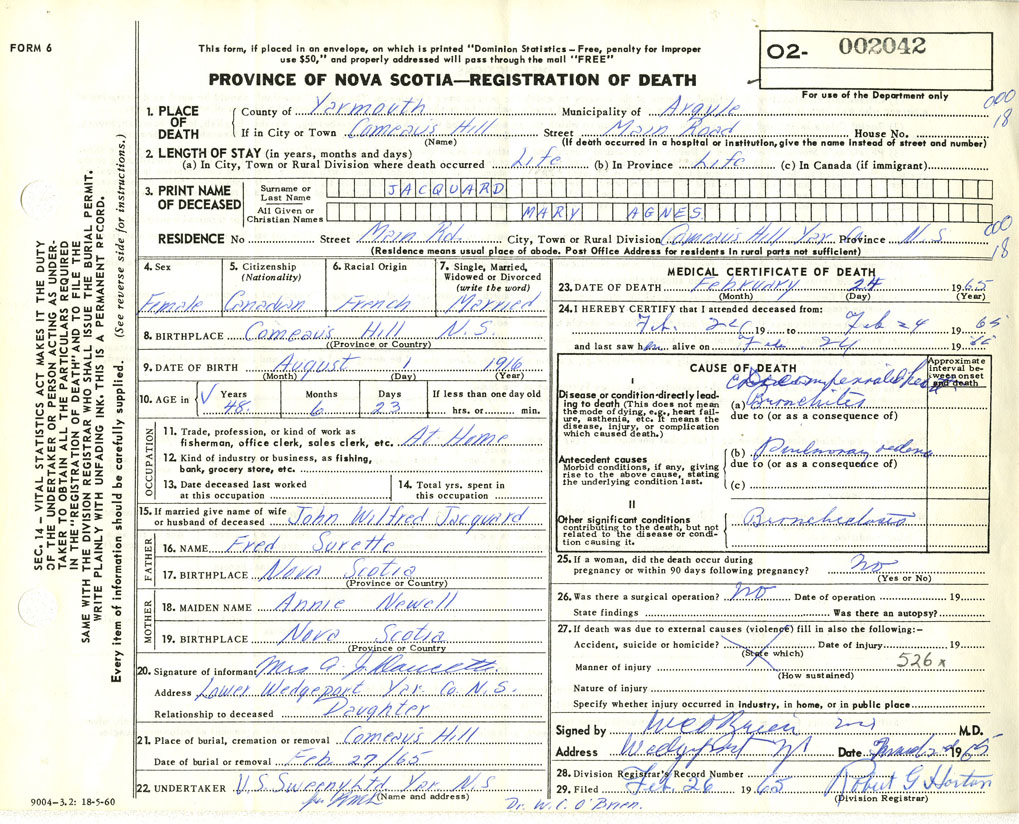 FORM 6
This form, if placed in an envelope, on which is printed "Dominion Statistics – Free, penalty for improper
use $50," and properly addressed will pass through the mail "FREE"
PROVINCE OF NOVA SCOTIA—REGISTRATION OF DEATH
02- 002042
For use of the Department only
000
18
1. PLACE OF DEATH
County of Yarmouth Municipality of Argyle
If in City or Town Comeau's Hill Street Main Road House No.
(Name) (If death occurred in a hospital or institution, give the name instead of street and number)
2. LENGTH OF STAY (in years, months and days)
(a) In City, Town or Rural Division where death occurred Life (b) In Province Life (c) In Canada (if immigrant)
3. PRINT NAME OF DECEASED
Surname or Last Name JACQUARD
All Given or Christian Names MARY AGNES
000
18
RESIDENCE No Street Main Rd. City, Town or Rural Division Comeau's Hill Yar. Co Province N.S
(Residence means usual place of abode. Post Office Address for residents in rural parts not sufficient)
4. Sex Female
5. Citizenship (Nationality) Canadian
6. Racial Origin French
7. Single, Married, Widowed or Divorced (write the word) Married
8. BIRTHPLACE Comeau's Hill N.S
(Province or Country)
9. DATE OF BIRTH August 1 1916
(Month) (Day) (Year)
10. AGE in Years 48 Months 6 Days 23 If less than one day old hrs. or min.
OCCUPATION
11. Trade, profession, or kind of work as
fisherman, office clerk, sales clerk, etc. At Home
12. Kind of industry or business, as fishing,
bank, grocery store, etc.
13. Date deceased last worked
at this occupation
14. Total yrs. spent in
this occupation
15. If married give name of wife
or husband of deceased John Wilfred Jacquard
FATHER
16. NAME Fred Surette
17. BIRTHPLACE Nova Scotia
(Province or Country)
MOTHER
18. MAIDEN NAME Annie Newell
19. BIRTHPLACE Nova Scotia
(Province or Country
20. Signature of informant Mrs. A. J. Doucette
Address Lower Wedgeport Yar. Co. N.S.
Relationship to deceased Daughter
21. Place of burial, cremation or removal Comeau's Hill
Date of burial or removal Feb. 27/65
22. UNDERTAKER V.S. Sweeny Ltd Yar. N.S
(Name and address)
MEDICAL CERTIFICATE OF DEATH
23. DATE OF DEATH February 24 1965
(Month) (Day) (Year)
24. I HEREBY CERTIFY that I attended deceased from:
Feb. 24 19 to Feb 24 1965
and last saw her alive on Feb 24 1965
CAUSE OF DEATH
Approximate interval between onset and death
I
Disease or condition directly leading
to death (This does not mean
the mode of dying, e.g., heart failure,
asthenia, etc. It means the
disease, injury, or complication
which caused death.)
Decompensated
(a) Bronchitis
due to (or as a consequence of)
Antecedent causes
Morbid conditions, if any, giving
rise to the above cause, stating
the underlying condition last.
(b) Pulmonary oedema
due to (or as a consequence of)
(c)
II
Other significant conditions
contributing to the death, but not
related to the disease or condition
causing it.
Bronchiectasis
25. If a woman, did the death occur during
pregnancy or within 90 days following pregnancy? no
(Yes or No)
26. Was there a surgical operation? no Date of operation 19
State findings Was there an autopsy?
27. If death was due to external causes (violence) fill in also the following:–
Accident, suicide or homicide? Date of injury 19
(State which)
526x
Manner of injury
(How sustained)
Nature of injury
Specify whether injury occurred in industry, in home, or in public place
Signed by W C O'Brien MD M.D.
Address Wedgeport NS Date 1965
28. Division Registrar's Record Number
29. Filed Feb. 26 1965 Robert G Horton
(Division Registrar)
Dr. W. C. O'Brien.
9004–3.2: 18-5-60
SEC. 14 – VITAL STATISTICS ACT MAKES IT THE DUTY
OF THE UNDERTAKER OR PERSON ACTING AS UNDER-
TAKER TO OBTAIN ALL THE PARTICULARS REQUIRED
IN THE "REGISTRATION OF DEATH" AND TO FILE THE
SAME WITH THE DIVISION REGISTRAR WHO SHALL ISSUE THE BURIAL PERMIT.
WRITE PLAINLY WITH UNFADING INK. THIS IS A PERMANENT RECORD.
Every item of information should be carefully supplied. (See reverse side for instructions.)